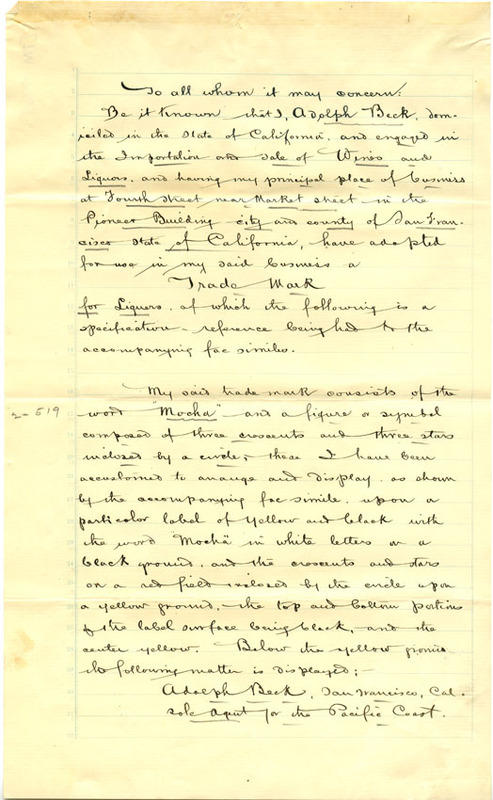 To all whom it may concern:
Be it Known that I, Adolph Beck, dom-
iciled in the State of California, and engaged in
the Importation and Sale of Wines and
Liquors, and having my principal place of business
at Fourth Street near Market Street in the
Pioneer Building city and county of San Fran-
cisco State of California, have adopted
for use in my said business a
Trade Mark
for Liquors, of which the following is a
specification - reference being had to the
accompanying fac similes.
My said trade mark consists of the
2-519
word "Mocha" and a figure or symbol
composed of three crescents and three stars
inclosed by a circle; these I have been
accustomed to arrange and display, as shown
by the accompanying fac simile, upon a
particolor label of yellow and black with
the word "Mocha" in white letters on a
black ground, and the crescents and stars
on a red field inclosed by the circle upon
a yellow ground, the top and bottom portions
of the label surface being black, and the
center yellow. Below the yellow
the following matter is displayed;-
Adolph Beck, San Francisco, Cal.
sole Agent for the Pacific Coast.